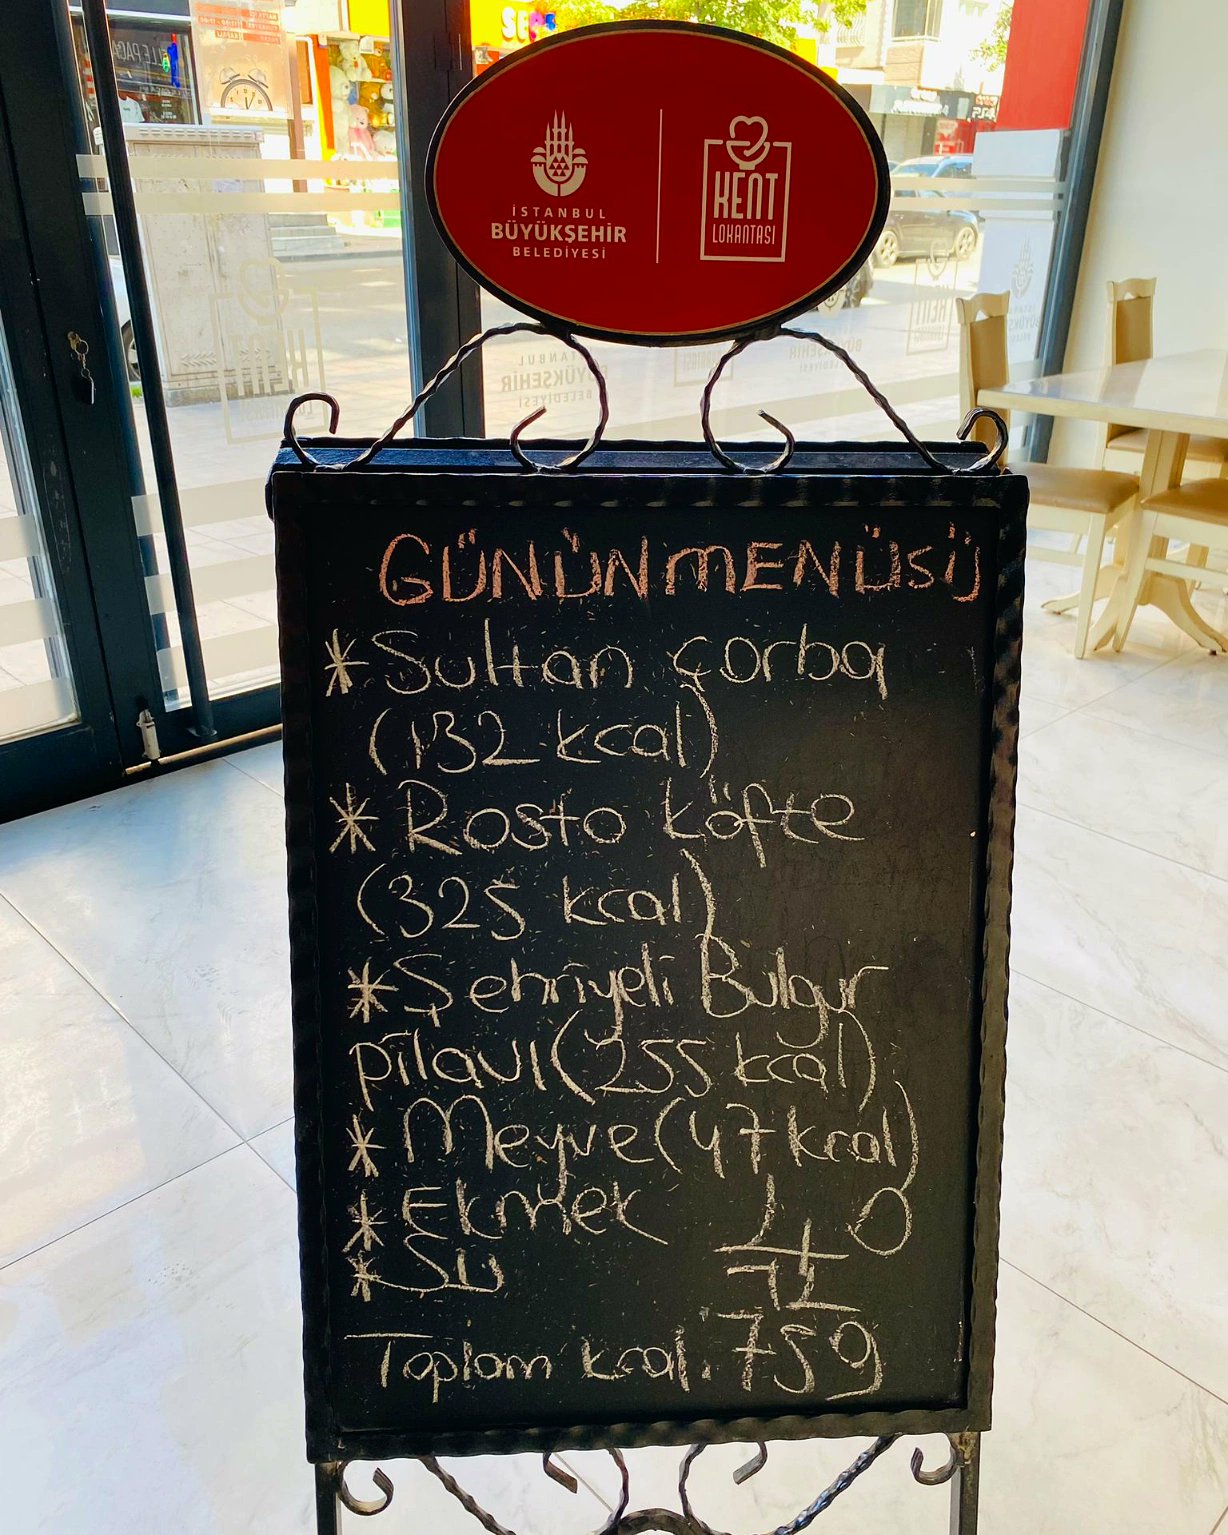 İSTANBUL
BÜYÜKŞEHİR
BELEDİYESİ
KENT
LOKANTASI
GÜNÜN MENÜSÜ
* Sultan çorba
(132 kcal)
* Rosto köfte
(325 kcal)
* Şehriyeli Bulgur
pilavı (255 kcal)
* Meyve (47 kcal)
* Ekmek
* Su
40
TL
Toplam kcal: 759